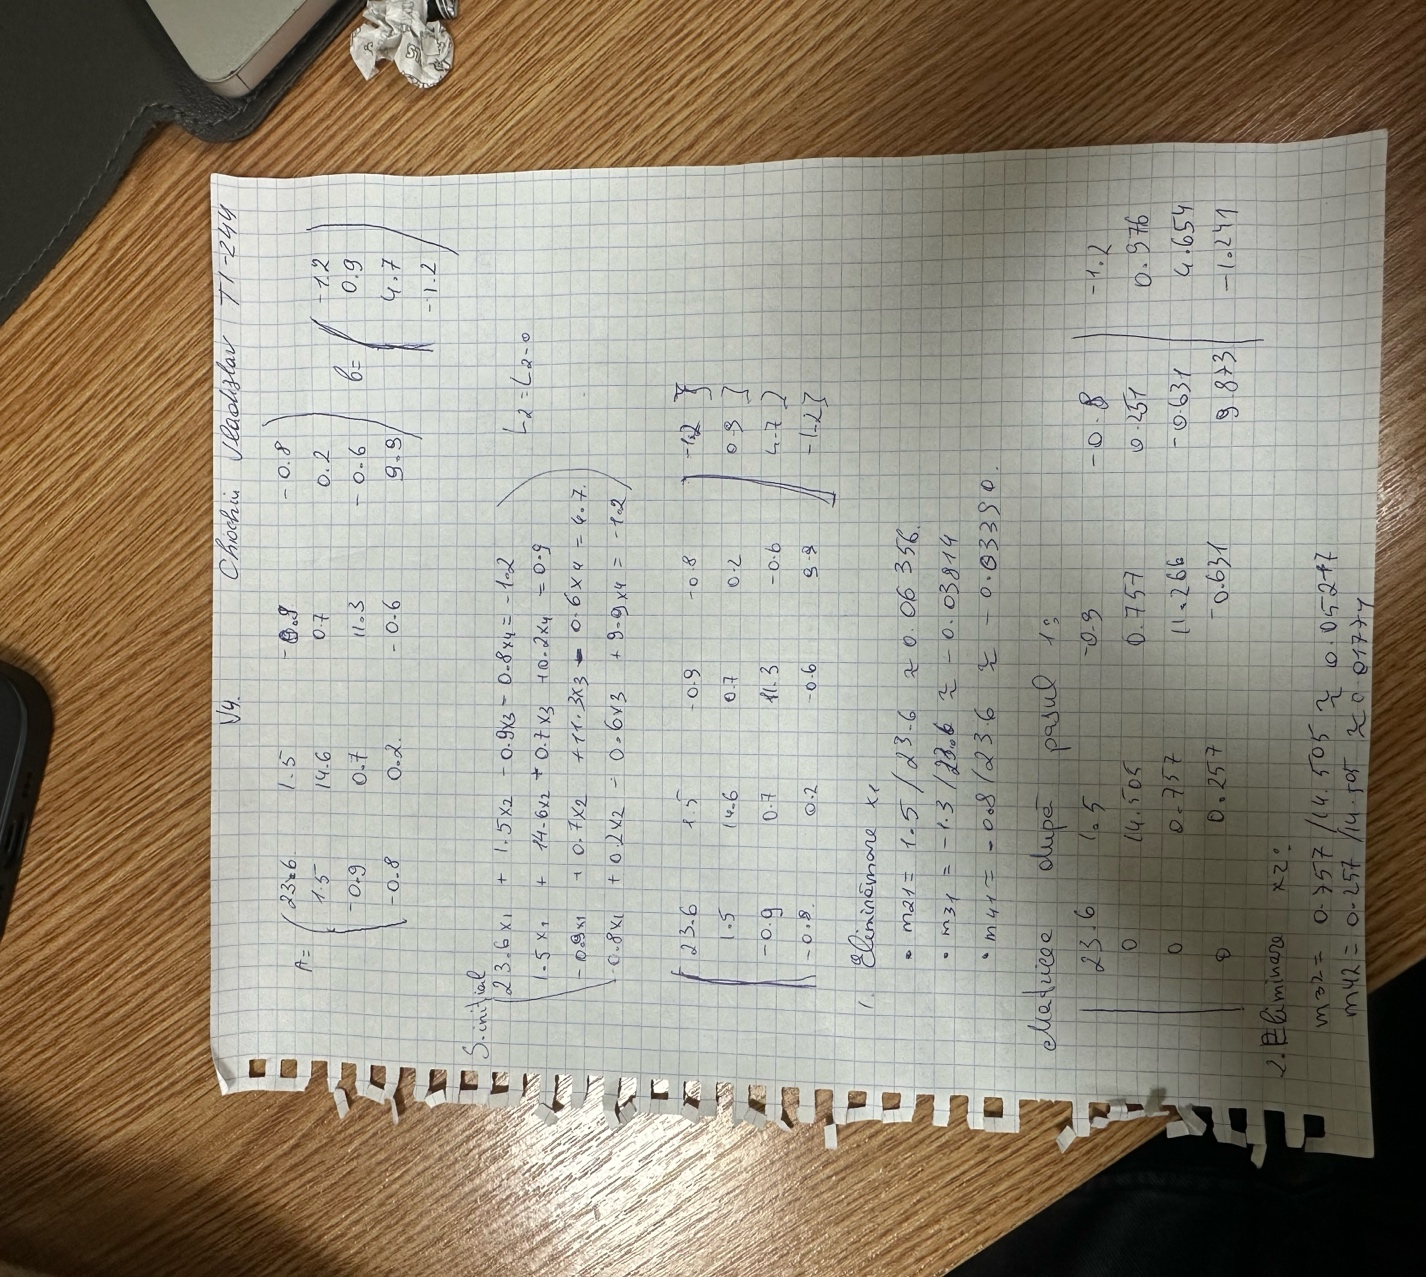 V4. Chiochiu Vladislav TI-244
A = ( 23.6 1.5 -0.9 -0.8 ) b = ( -1.2 )
1.5 14.6 0.7 0.2 0.9
-0.9 0.7 11.3 -0.6 4.7
-0.8 0.2 -0.6 9.9 -1.2
S. initial
23.6x1 + 1.5x2 - 0.9x3 - 0.8x4 = -1.2
1.5x1 + 14.6x2 + 0.7x3 + 0.2x4 = 0.9 L2 = L2-0
-0.9x1 + 0.7x2 + 11.3x3 - 0.6x4 = 4.7.
-0.8x1 + 0.2x2 - 0.6x3 + 9.9x4 = -1.2
[ 23.6 1.5 -0.9 -0.8 | -1.2 ]
1.5 14.6 0.7 0.2 | 0.9 ]
-0.9 0.7 11.3 -0.6 | 4.7 ]
-0.8. 0.2 -0.6 9.9 | -1.2 ]
1. Eliminămare x1
• m21 = 1.5 / 23.6 ≈ 0.06356.
• m31 = -1.3 / 23.6 ≈ -0.03814
• m41 = -0.8 / 23.6 ≈ -0.03390.
Matricea după pasul 1:
23.6 1.5 -0.9 -0.8 | -1.2
0 14.505 0.757 0.251 | 0.976
0 0.757 11.266 -0.631 | 4.654
0 0.257 -0.631 9.873 | -1.241
2. Eliminare x2:
m32 = 0.757 / 14.505 ≈ 0.05217
m42 = 0.257 / 14.505 ≈ 0.01774